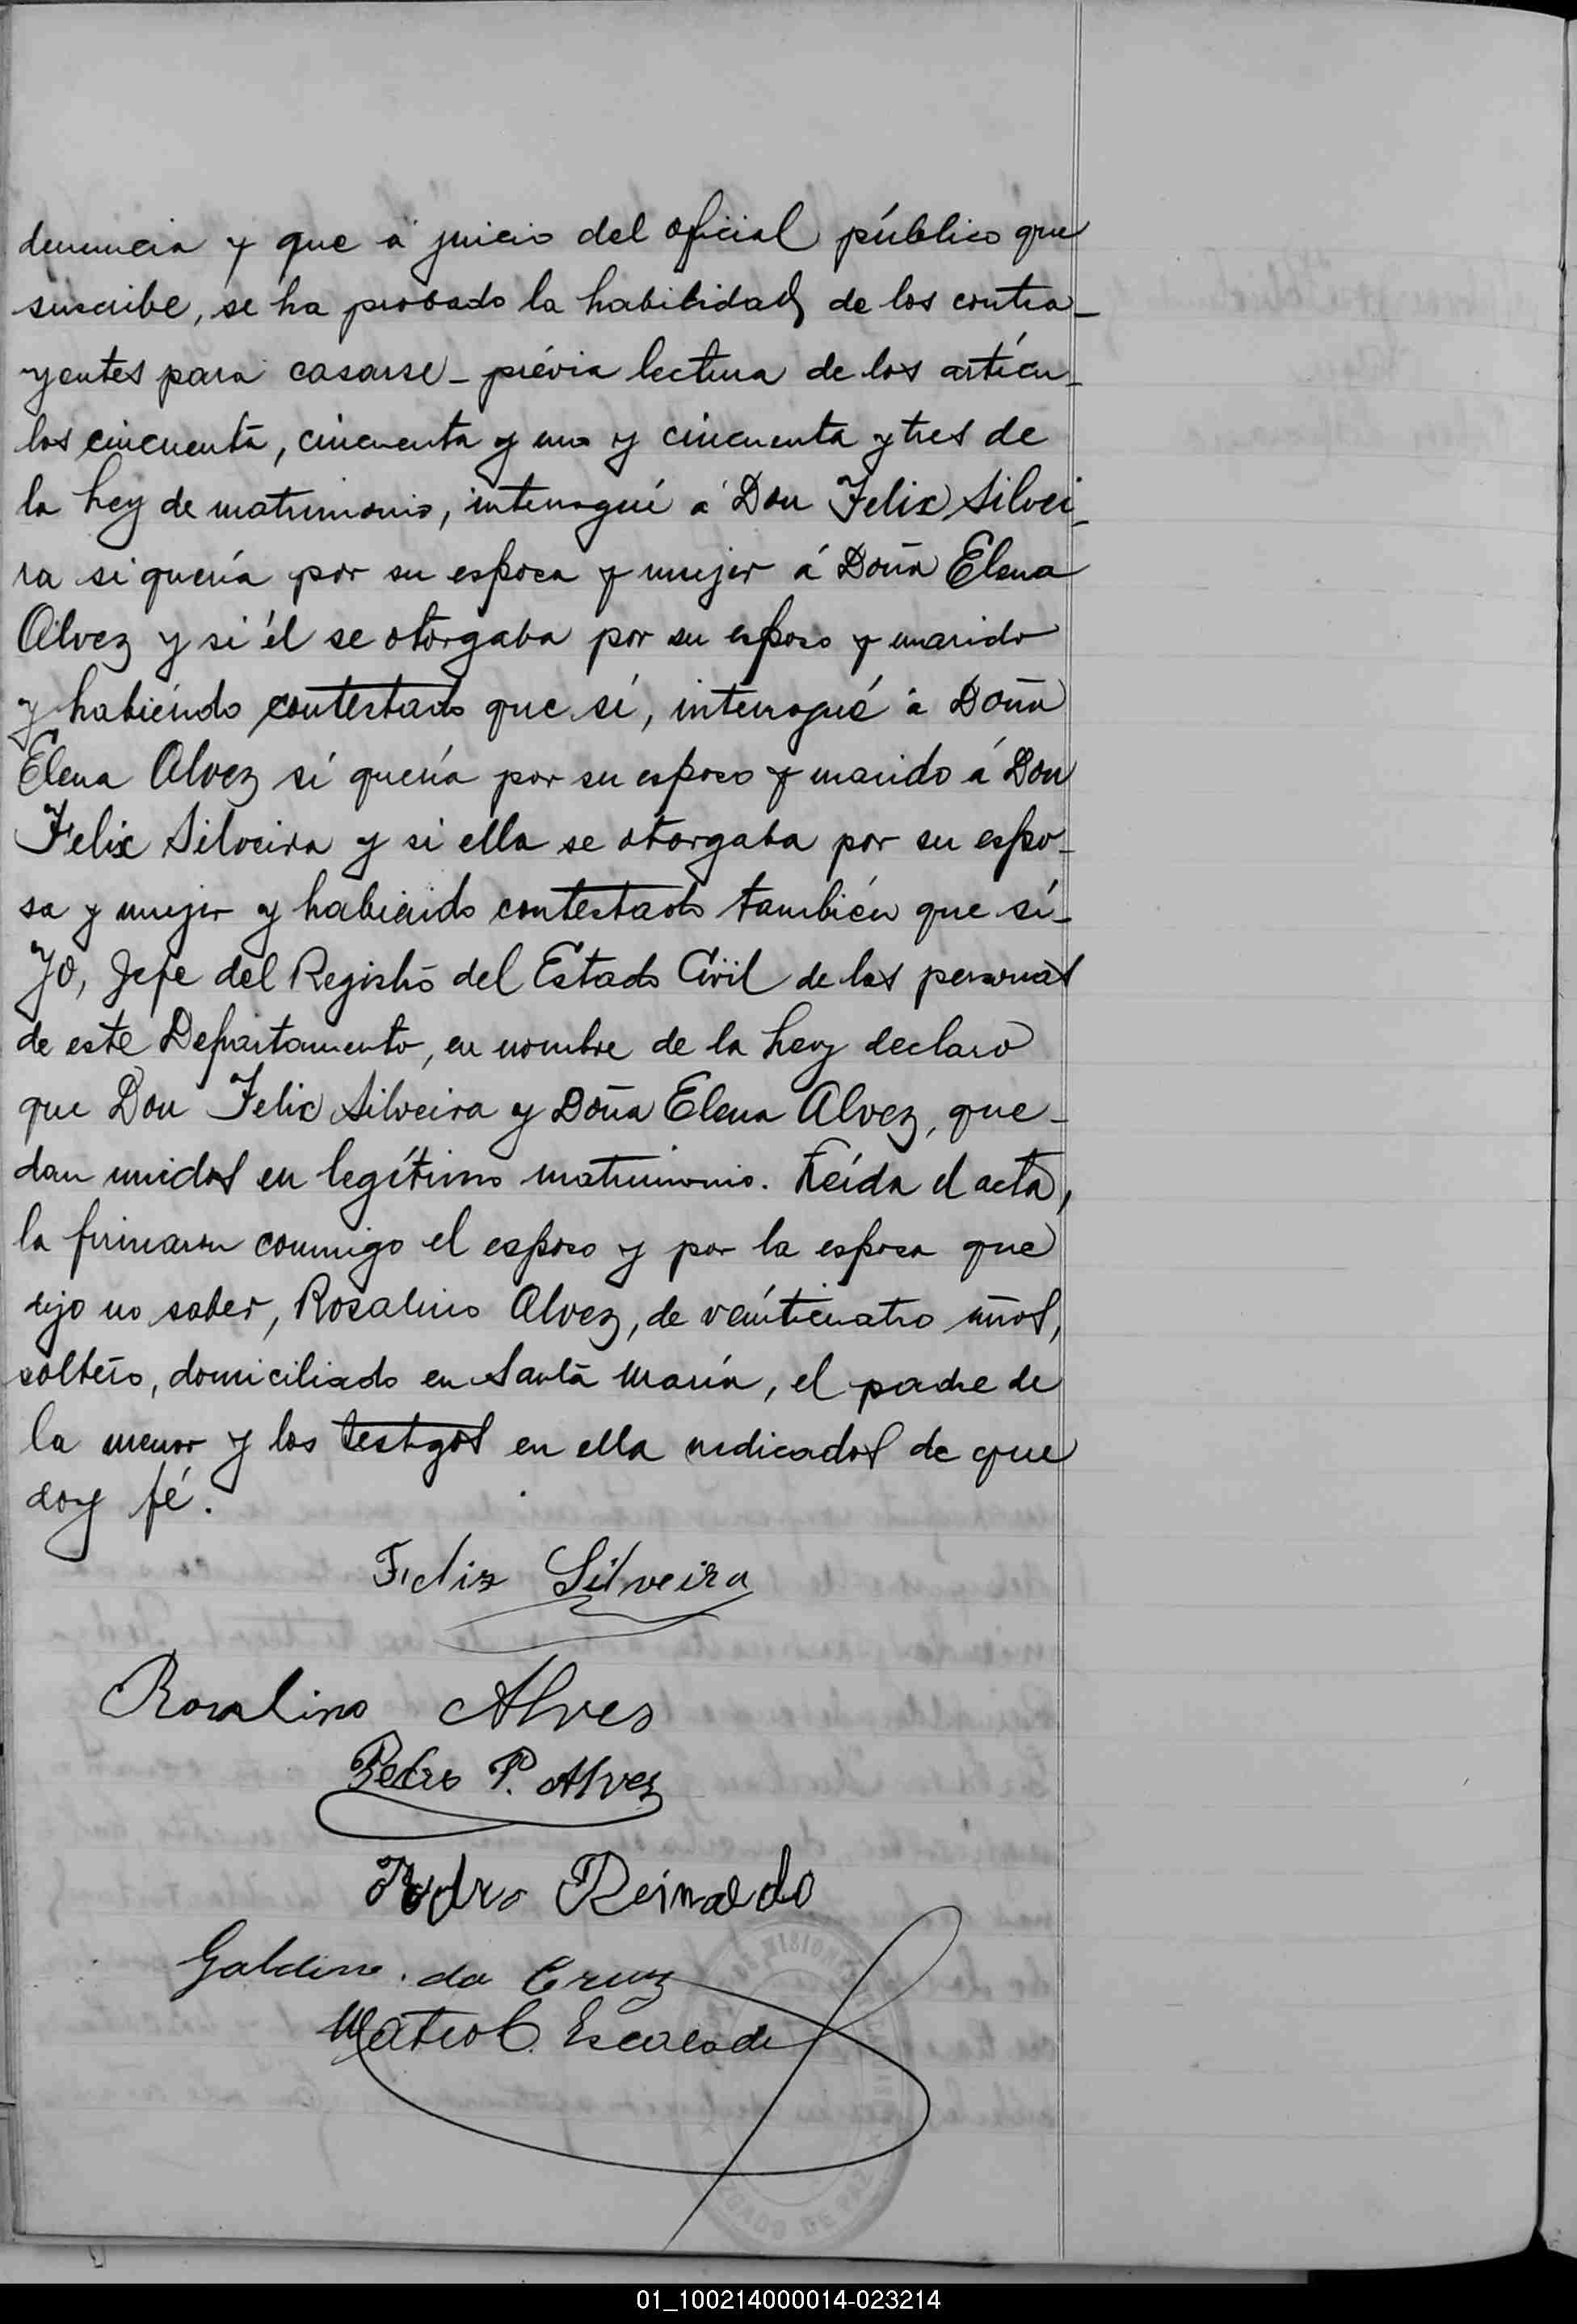 denuncia y que á juicio del oficial público que
suscribe, se ha probado la habilidad de los contra-
yentes para casarse - prévia lectura de los artícu-
los cincuenta, cincuenta y uno y cincuenta y tres de
la Ley de matrimonio, interrogué á Don Felix Silvei-
ra si quería por su esposa y mujer á Doña Elena
Alvez y si él se otorgaba por su esposo y marido
y habiendo contestado que sí, interrogué á Doña
Elena Alvez si quería por su esposo y marido á Don
Felix Silveira y si ella se otorgaba por su espo-
sa y mujer y habiendo contestado también que sí-
Yo, Jefe del Registro del Estado Civil de las personas
de este Departamento, en nombre de la Ley declaro
que Don Felix Silveira y Doña Elena Alvez, que-
dan unidos en legítimo matrimonio. Leída el acta,
la firmaron conmigo el esposo y por la esposa que
dijo no saber, Rosalino Alvez, de veinticuatro años,
soltero, domiciliado en Santa María, el padre de
la menor y los testigos en ella indicados de que
doy fé.
Feliz Silveira
Rosalino Alves
Pedro P. Alvez
Pedro Reinaldo
Galdino da Cruz
Mateo C. Escalada
DE MISIONES
JUZGADO DE PAZ
01_100214000014-023214